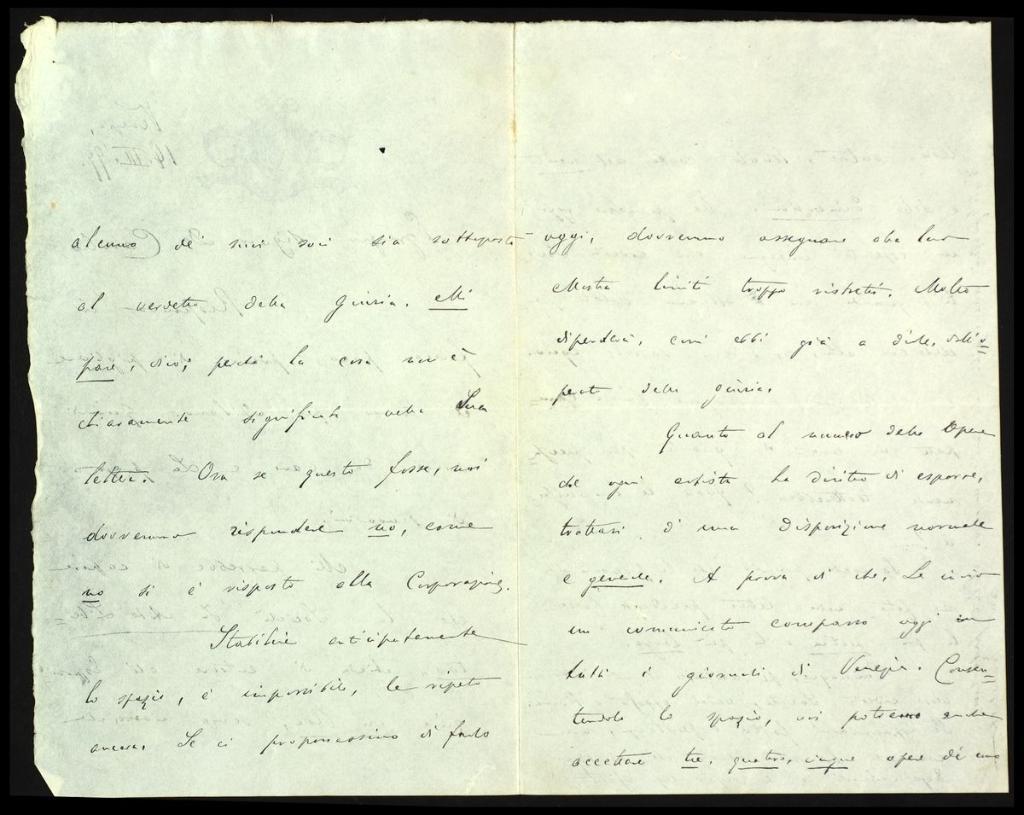 alcuno de' suoi soci sia sottoposto
al verdetto della Giuria. Mi
pare, dico; perché la cosa non è
chiaramente significata nella Sua
lettera. Ora se questo fosse, noi
dovremmo rispondere no, come
no si è risposto alla Corporazione.
Stabilire anticipatamente
lo spazio, è impossibile, le ripeto
ancora. Se ci proponessimo di farlo
oggi, dovremmo assegnare alla loro
Mostra limiti troppo ristretti. Molto
dipenderà, com' ebbi già a dirle, dall'o=
perato della giuria.
Quanto al numero delle Opere
che ogni artista ha diritto di esporre,
trattasi d'una disposizione normale
e generale. A prova di che, Le invio
un comunicato comparso oggi in
tutti i giornali di Venezia. Consen=
tendolo lo spazio, noi potremo anche
accettare tre, quattro, cinque opere di uno